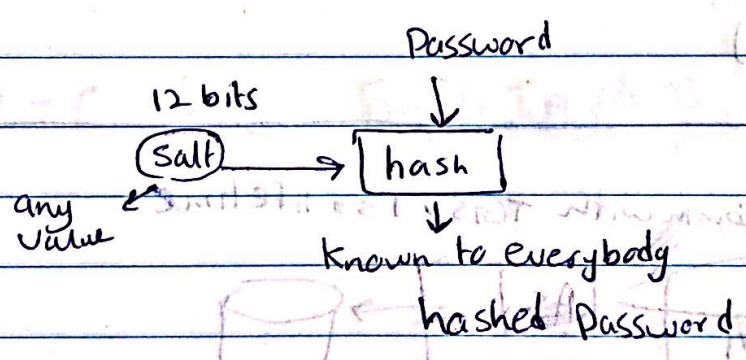 Password
12 bits
Salt
hash
any
value
Known to everybody
hashed Password